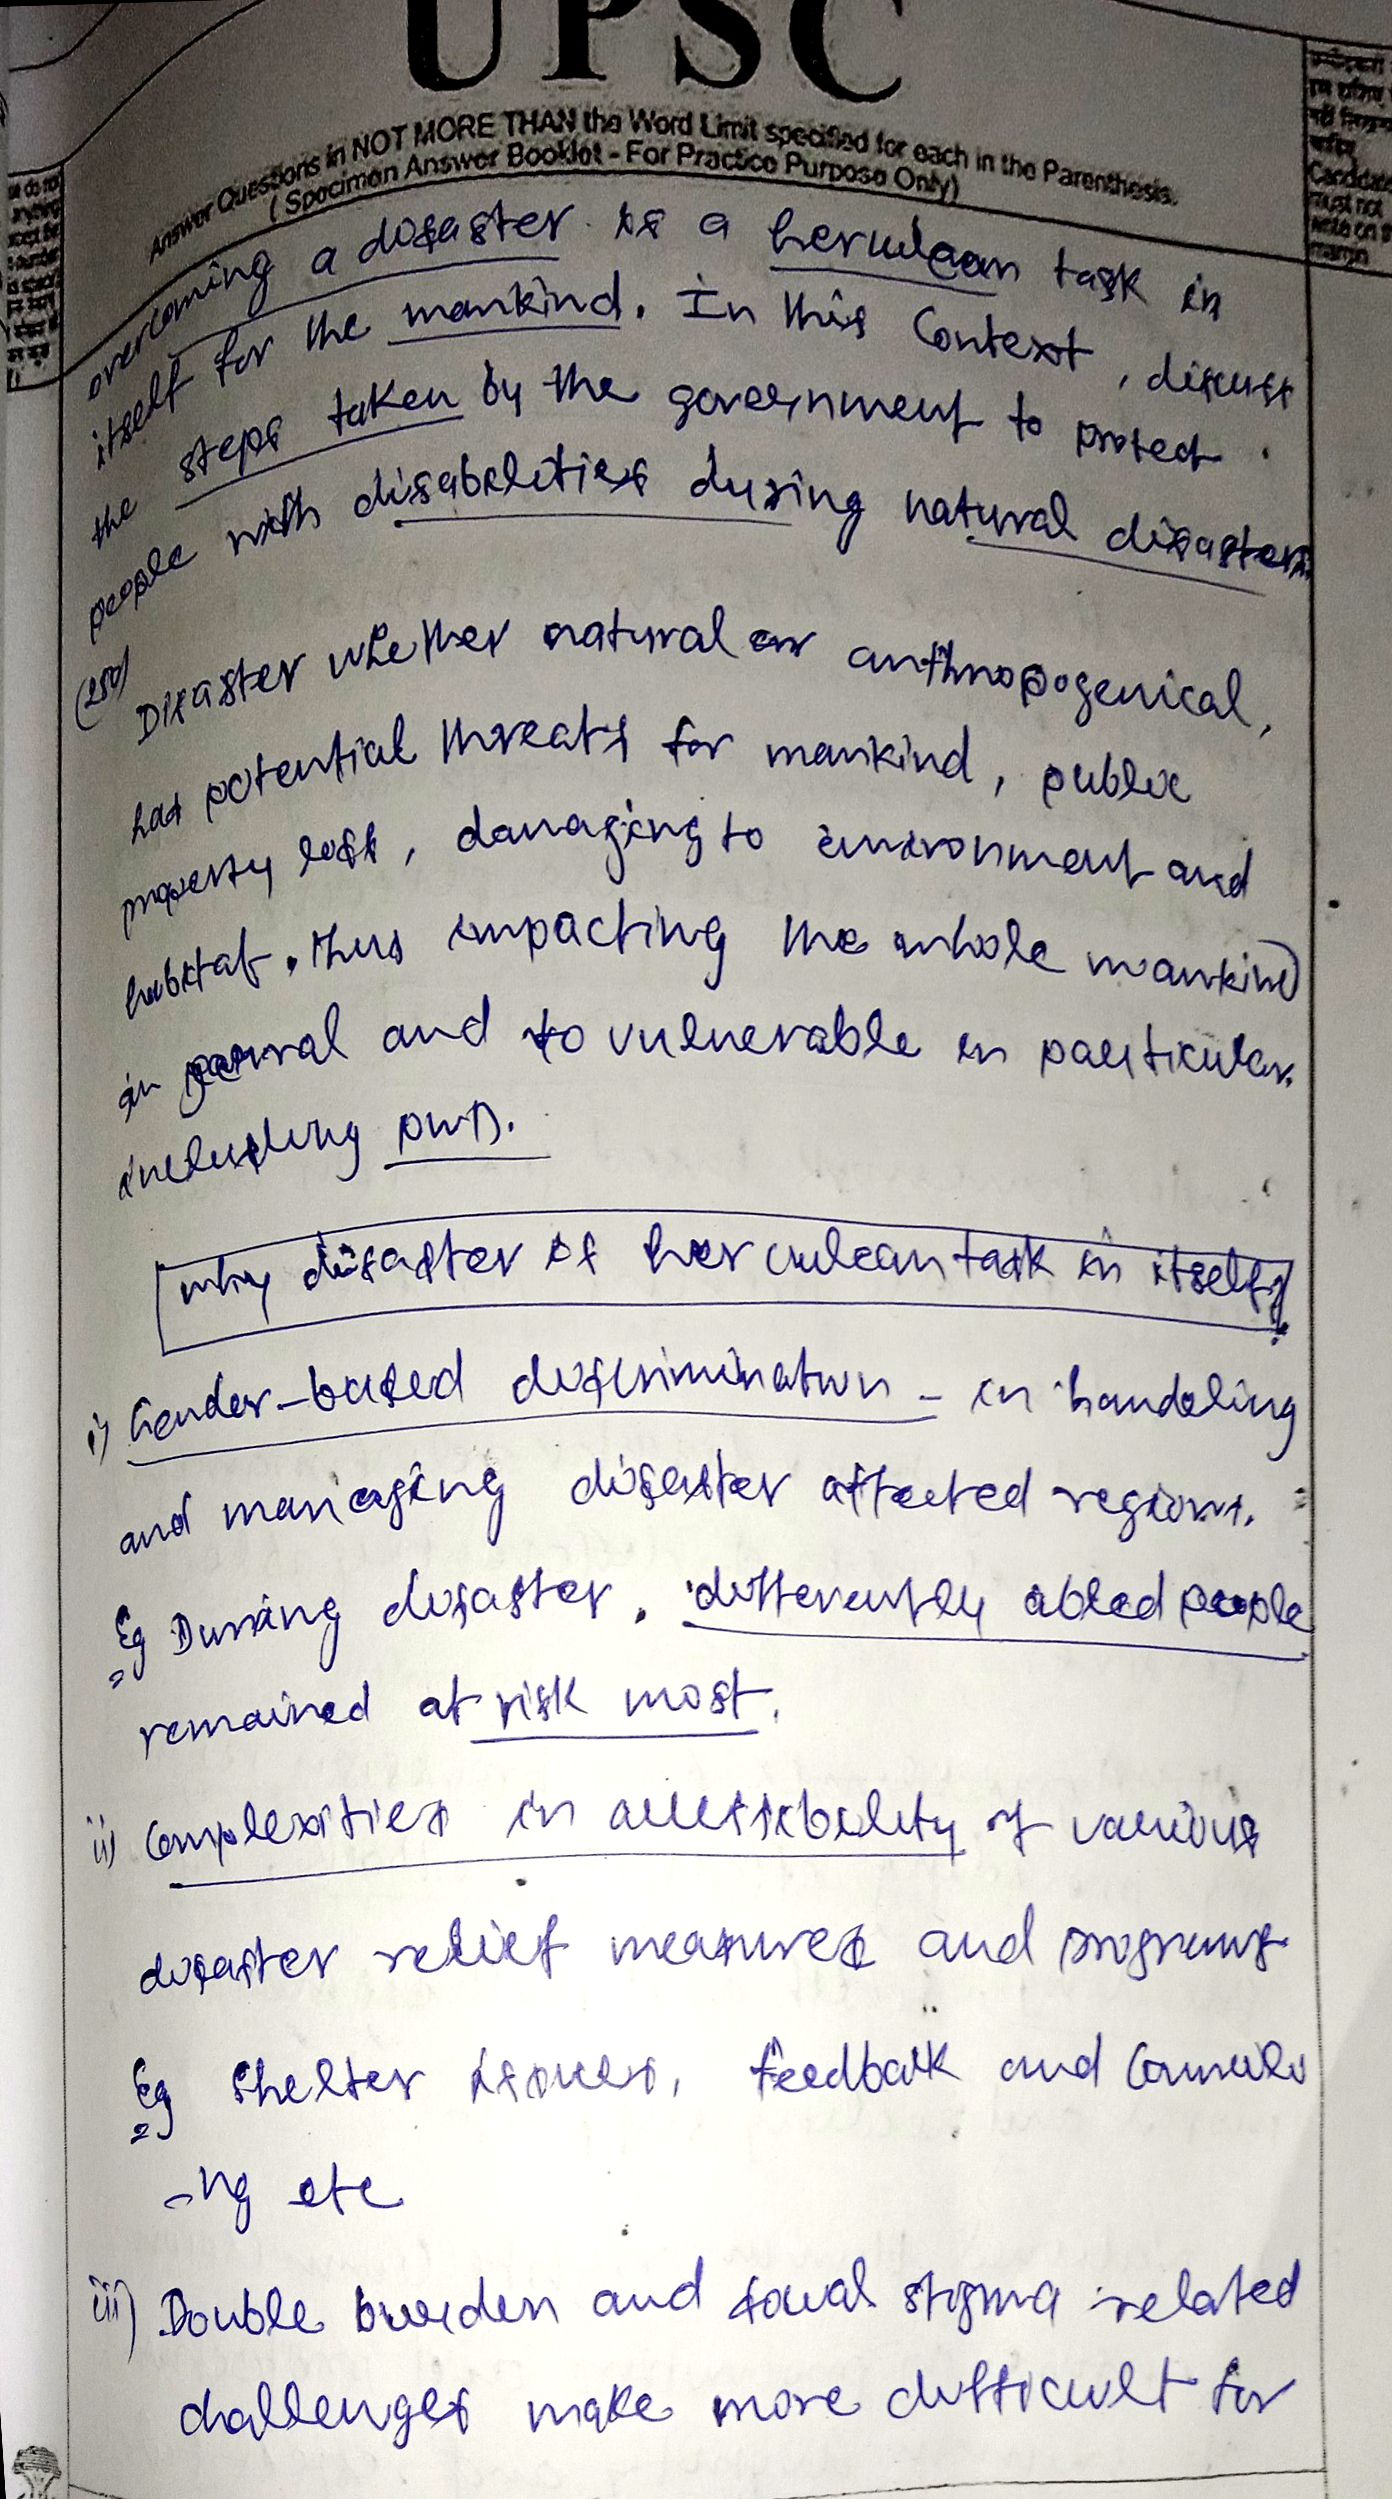 UPSC
Answer Questions in NOT MORE THAN the Word Limit specified for each in the Parenthesis.
(Specimen Answer Booklet - For Practice Purpose Only)
Candidate
must not
write on
margin
overcoming a disaster is a herculean task in
itself for the mankind. In this Context, discuss
the steps taken by the government to protect
people with disabilities during natural disasters.
(250)
Disaster whether natural or anthropogenical,
has potential threats for mankind, public
property loss, damaging to environment and
habitat. Thus impacting the whole mankind
in general and to vulnerable in particular
including PWD.
why disaster is herculean task in itself?
i) Gender-based discrimination - in handeling
and managing disaster affected regions.
Eg During disaster, differently abled people
remained at risk most.
ii) Complexities in accessibility of various
disaster relief measures and programs
Eg Shelter issues, feedback and Counsil
-ng etc
iii) Double burden and social stigma related
challenges make more difficult for